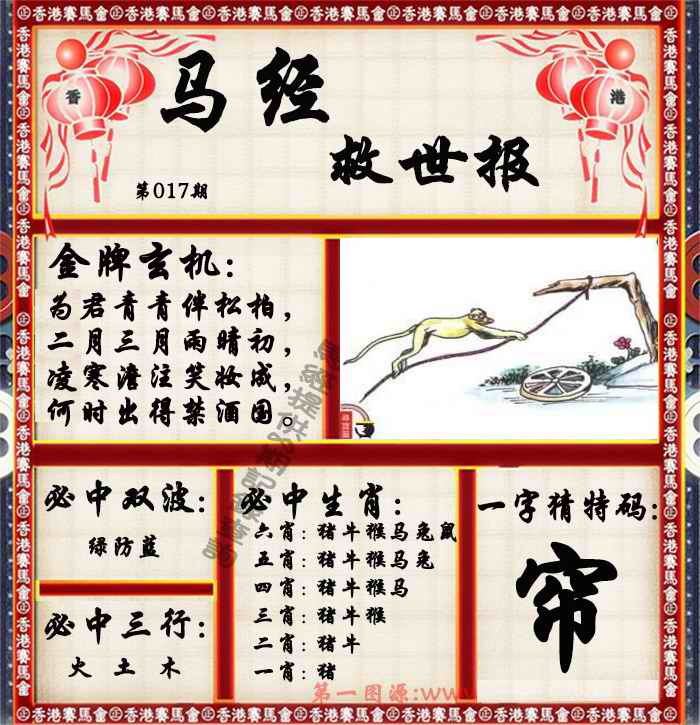 香港賽馬會
香
港
马经
救世报
第017期
金牌玄机：
为君青青伴松柏，
二月三月雨晴初，
凌寒澹注笑妆成，
何时出得禁酒国。
必中双波：
绿防蓝
必中三行：
火 土 木
必中生肖：
六肖：猪牛猴马兔鼠
五肖：猪牛猴马兔
四肖：猪牛猴马
三肖：猪牛猴
二肖：猪牛
一肖：猪
一字猜特码：
帘
第一图源:www